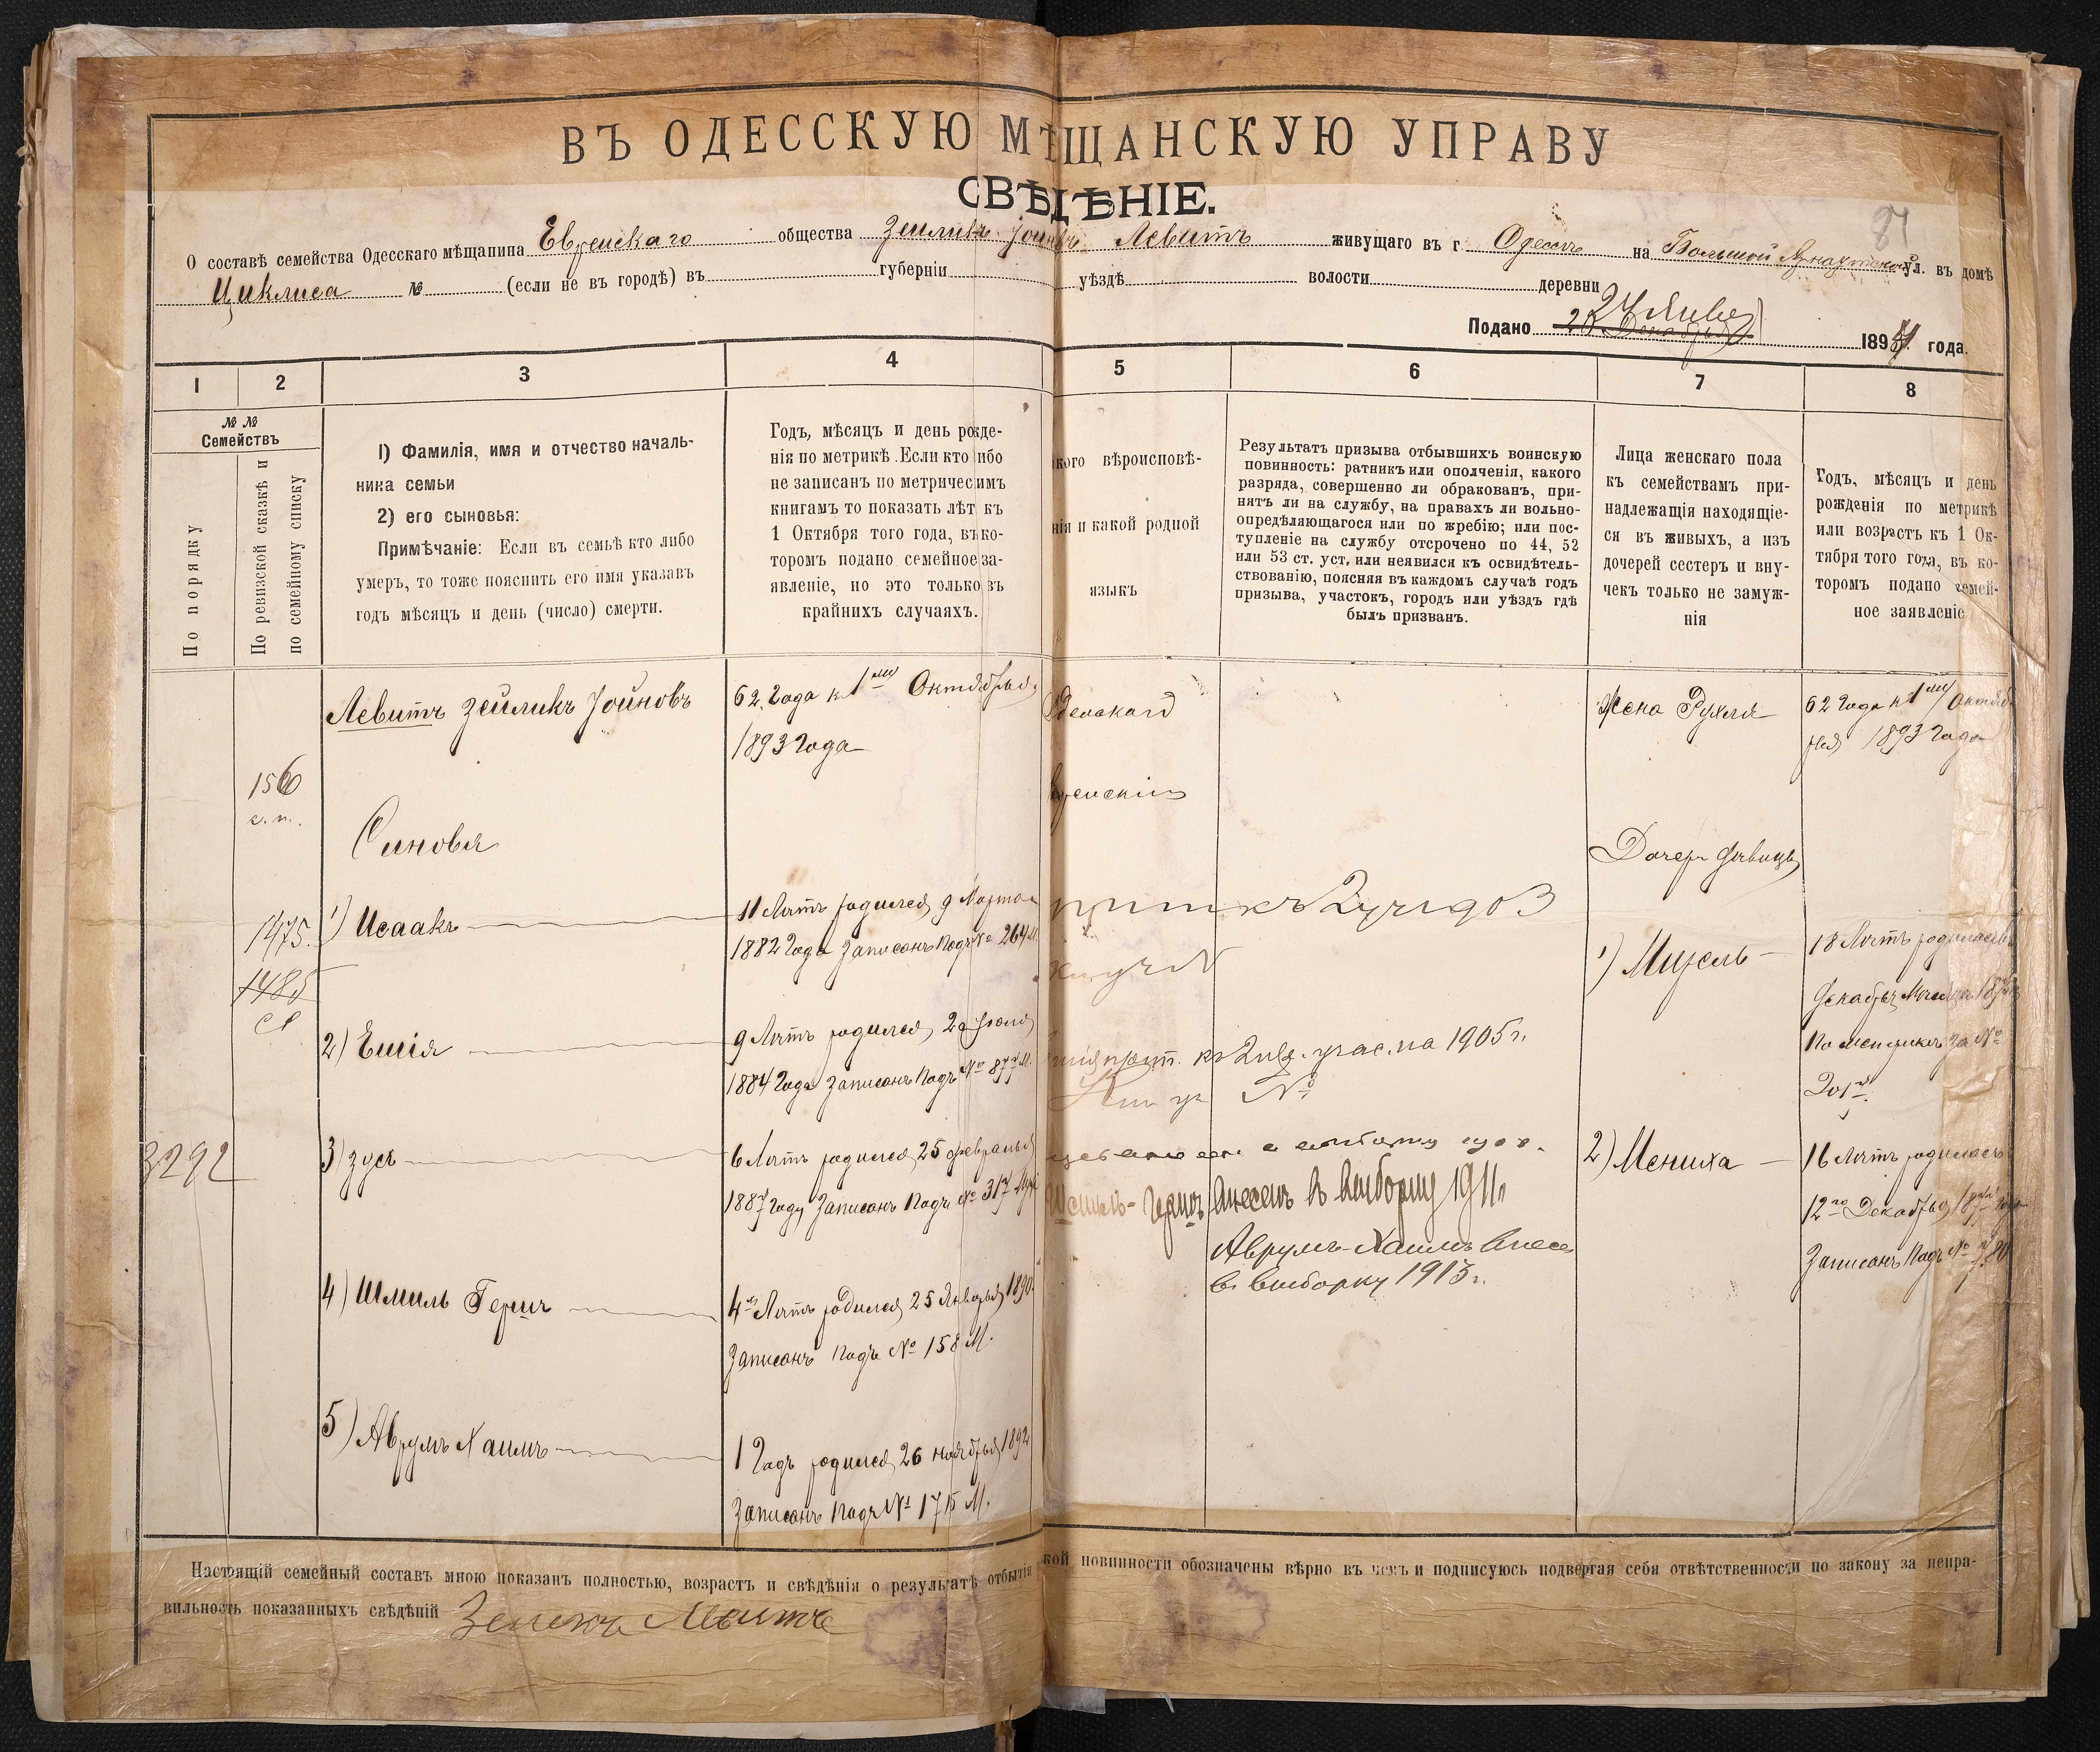 ВЪ ОДЕССКУЮ МѢЩАНСКУЮ УПРАВУ
СВѢДѢНІЕ.
84
О составѣ семейства Одесскаго мѣщанина Еврейскаго общества Зейликъ Іойновъ Левитъ живущаго въ г. Одессѣ на Большой Арнаутской ул. въ домѣ
Циклиса № (если не въ городѣ) въ губерніи уѣздѣ волости деревни
Подано 24 Янв 1894 года.
1 2 3 4 5 6 7 8
№ № Семействъ
По порядку
По ревизской сказкѣ и
по семейному списку
1) Фамилія, имя и отчество началь-
ника семьи
2) его сыновья:
Примѣчаніе: Если въ семьѣ кто либо
умеръ, то тоже пояснить его имя указавъ
годъ мѣсяцъ и день (число) смерти.
Годъ, мѣсяцъ и день рожде-
нія по метрикѣ. Если кто либо
не записанъ по метрическимъ
книгамъ то показать лѣтъ къ
1 Октября того года, въ ко-
торомъ подано семейное за-
явленіе, но это только въ
крайнихъ случаяхъ.
кого вѣроисповѣ-
нія и какой родной
языкъ
Результатъ призыва отбывшихъ воинскую
повинность: ратникъ или ополченія, какого
разряда, совершенно ли обракован, при-
нятъ ли на службу, на правахъ ли вольно-
опредѣляющагося или по жребію; или пос-
тупленіе на службу отсрочено по 44, 52
или 53 ст. уст, или неявился къ освидѣтель-
ствованію, поясняя въ каждомъ случаѣ годъ
призыва, участокъ, городъ или уѣздъ гдѣ
былъ призван.
Лица женскаго пола
къ семействамъ при-
надлежащія находящіе-
ся въ живыхъ, а изъ
дочерей сестеръ и вну-
чекъ только не замуж-
нія
Годъ, мѣсяцъ и день
рожденія по метрикѣ
или возрастъ къ 1 Ок-
тября того года, въ ко-
торомъ подано семей-
ное заявленіе
Левитъ Зейликъ Іойновъ
62 года к 1му Октября
1893 года
Жена Рухля
62 года к 1му Октяб
ря 1893 года
156
с. п.
Синовя
Дочери
1475.
1485
1) Исаакъ
11 Лѣтъ родился 9 Марта
1882 Года Записанъ Подъ № 264 М.
1) Мизель
18 Лѣтъ родилась
2) Ешія
9 Лѣтъ родился
1884 Года Записанъ Подъ № 877 М.
къ уч. на 1905 г.
№
3292
3) Зусь
6 Лѣтъ родился 25 февраля
1887 году Записанъ Подъ № 317
Шмиль-Гершъ внесен в выборку 1911 г
Аврумъ-Хаимъ внесен
в выборку 1913 г.
2) Мениха
16 Лѣтъ родилась
12го Декабря
Записанъ Подъ №
4) Шмиль Гершъ
4 Лѣтъ родился 25 Января 1890
Записанъ подъ № 158 М.
5) Аврумъ Хаимъ
1 Годъ родился 26 ноября 1892
Записанъ Подъ № 1715 М.
Настоящій семейный составъ мною показанъ полностью, возрастъ и свѣдѣнія о результатѣ отбытія кой повинности обозначены вѣрно въ чемъ и подписуюсь подвергая себя отвѣтственности по закону за непра-
вильность показанныхъ свѣдѣній Зелекъ Левитъ